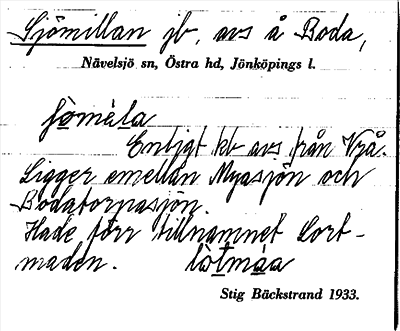 Sjömillan jb, avs å Boda,
Nävelsjö sn, Östra hd, Jönköpings l.
Enligt kb avs från Vrå.
Ligger emellan Myasjön och
Bodatornasjön.
Hade förr tillnamnet Lort-
maden. lòtmáa
Stig Bäckstrand 1933.